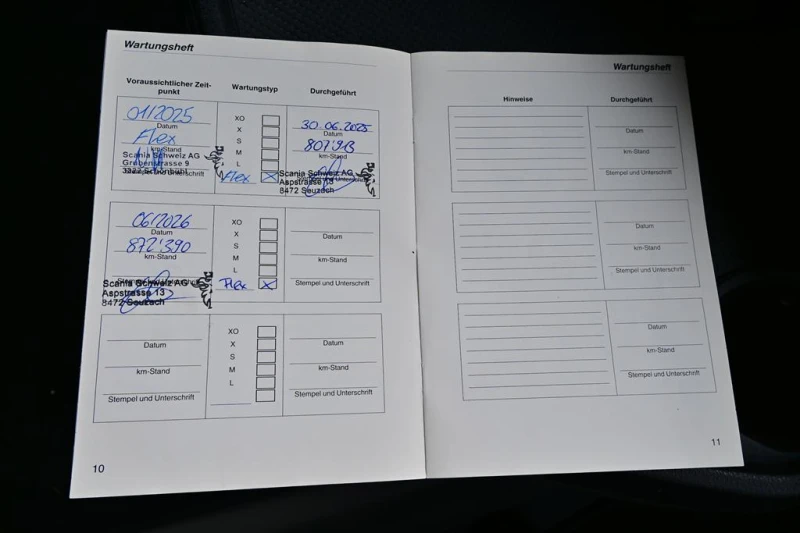 Wartungsheft
Voraussichtlicher Zeit-
punkt
Wartungstyp
Durchgeführt
01/2025
Datum
Flex
km-Stand
Scania Schweiz AG
Grubenstrasse 9
3322 Schönbühl
Stempel und Unterschrift
XO
X
S
M
L
Flex X
30.06.2025
Datum
807'913
km-Stand
Scania Schweiz AG
Stempel und Unterschrift
Aspstrasse 13
8472 Seuzach
06/2026
Datum
872'390
km-Stand
Stempel und Unterschrift
Scania Schweiz AG
Aspstrasse 13
8472 Seuzach
XO
X
S
M
L
Flex X
Datum
km-Stand
Stempel und Unterschrift
Datum
km-Stand
Stempel und Unterschrift
XO
X
S
M
L
Datum
km-Stand
Stempel und Unterschrift
10
Wartungsheft
Hinweise
Durchgeführt
Datum
km-Stand
Stempel und Unterschrift
Datum
km-Stand
Stempel und Unterschrift
Datum
km-Stand
Stempel und Unterschrift
11